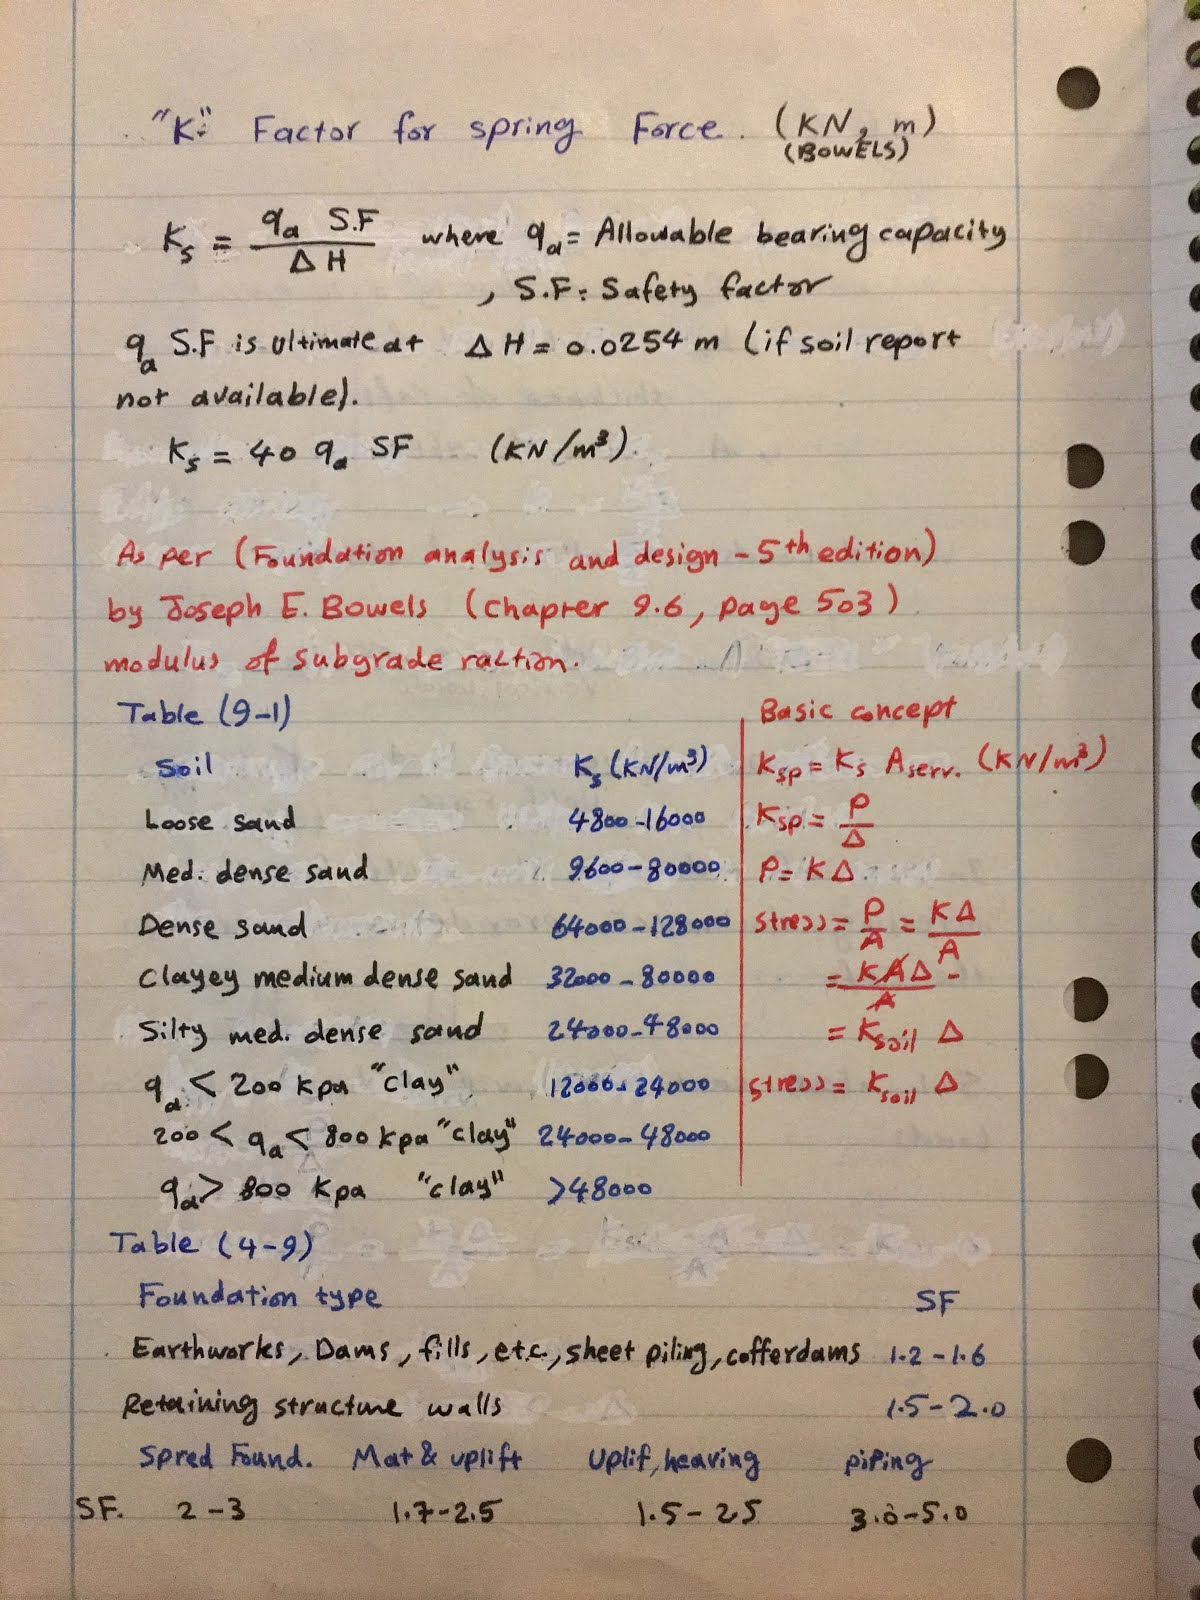 "K" Factor for spring Force. (KN, m)
(BOWELS)
Ks = qa S.F / ΔH where qa = Allowable bearing capacity
, S.F = Safety factor
qa S.F is ultimate at ΔH = 0.0254 m (if soil report
not available).
Ks = 40 qa SF (KN/m³).
As per (Foundation analysis and design - 5th edition)
by Joseph E. Bowels (Chapter 9.6, page 503)
modulus of subgrade raction.
Table (9-1)
Soil Ks (KN/m³)
Loose sand 4800-16000
Med. dense sand 9600-80000
Dense sand 64000-128000
Clayey medium dense sand 32000-80000
Silty med. dense sand 24000-48000
qa < 200 kpa "clay" 12000-24000
200 < qa < 800 kpa "clay" 24000-48000
qa > 800 kpa "clay" >48000
Basic concept
Ksp = Ks Aserv. (KN/m³)
Ksp = P / Δ
P = KΔ
stress = P / A = KΔ / A
= KAΔ / A
= Ksoil Δ
stress = Ksoil Δ
Table (4-9)
Foundation type SF
Earthworks, Dams, fills, etc., sheet piling, cofferdams 1.2-1.6
Retaining structure walls 1.5-2.0
Spred Found. Mat & uplift Uplif, heaving piping
SF. 2-3 1.7-2.5 1.5-25 3.0-5.0